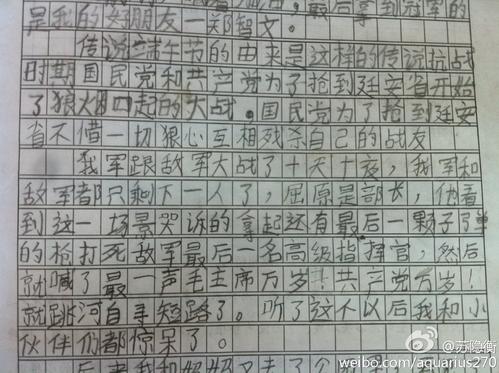 最后拿到冠军的
是我的好朋友一郑智文。
传说端午节的由来是这样的传说抗战
时期国民党和共产党为了抢到廷安省开始
了狼烟四起的大战。国民党为了抢到廷安
省不惜一切狠心互相残杀自己的战友
我军跟敌军大战了十天十夜，我军和
敌军都只剩下一人了，屈原是部长，他看
到这一场景哭诉的拿起还有最后一颗子弹
的枪打死敌军最后一名高级指挥官，然后
就喊了最一声毛主席万岁！共产党万岁！
就跳河自寻短路了。听了这个以后我和小
伙伴们都惊呆了。
后来我和妈妈又去了
@苏隐衡
weibo.com/aquarius270